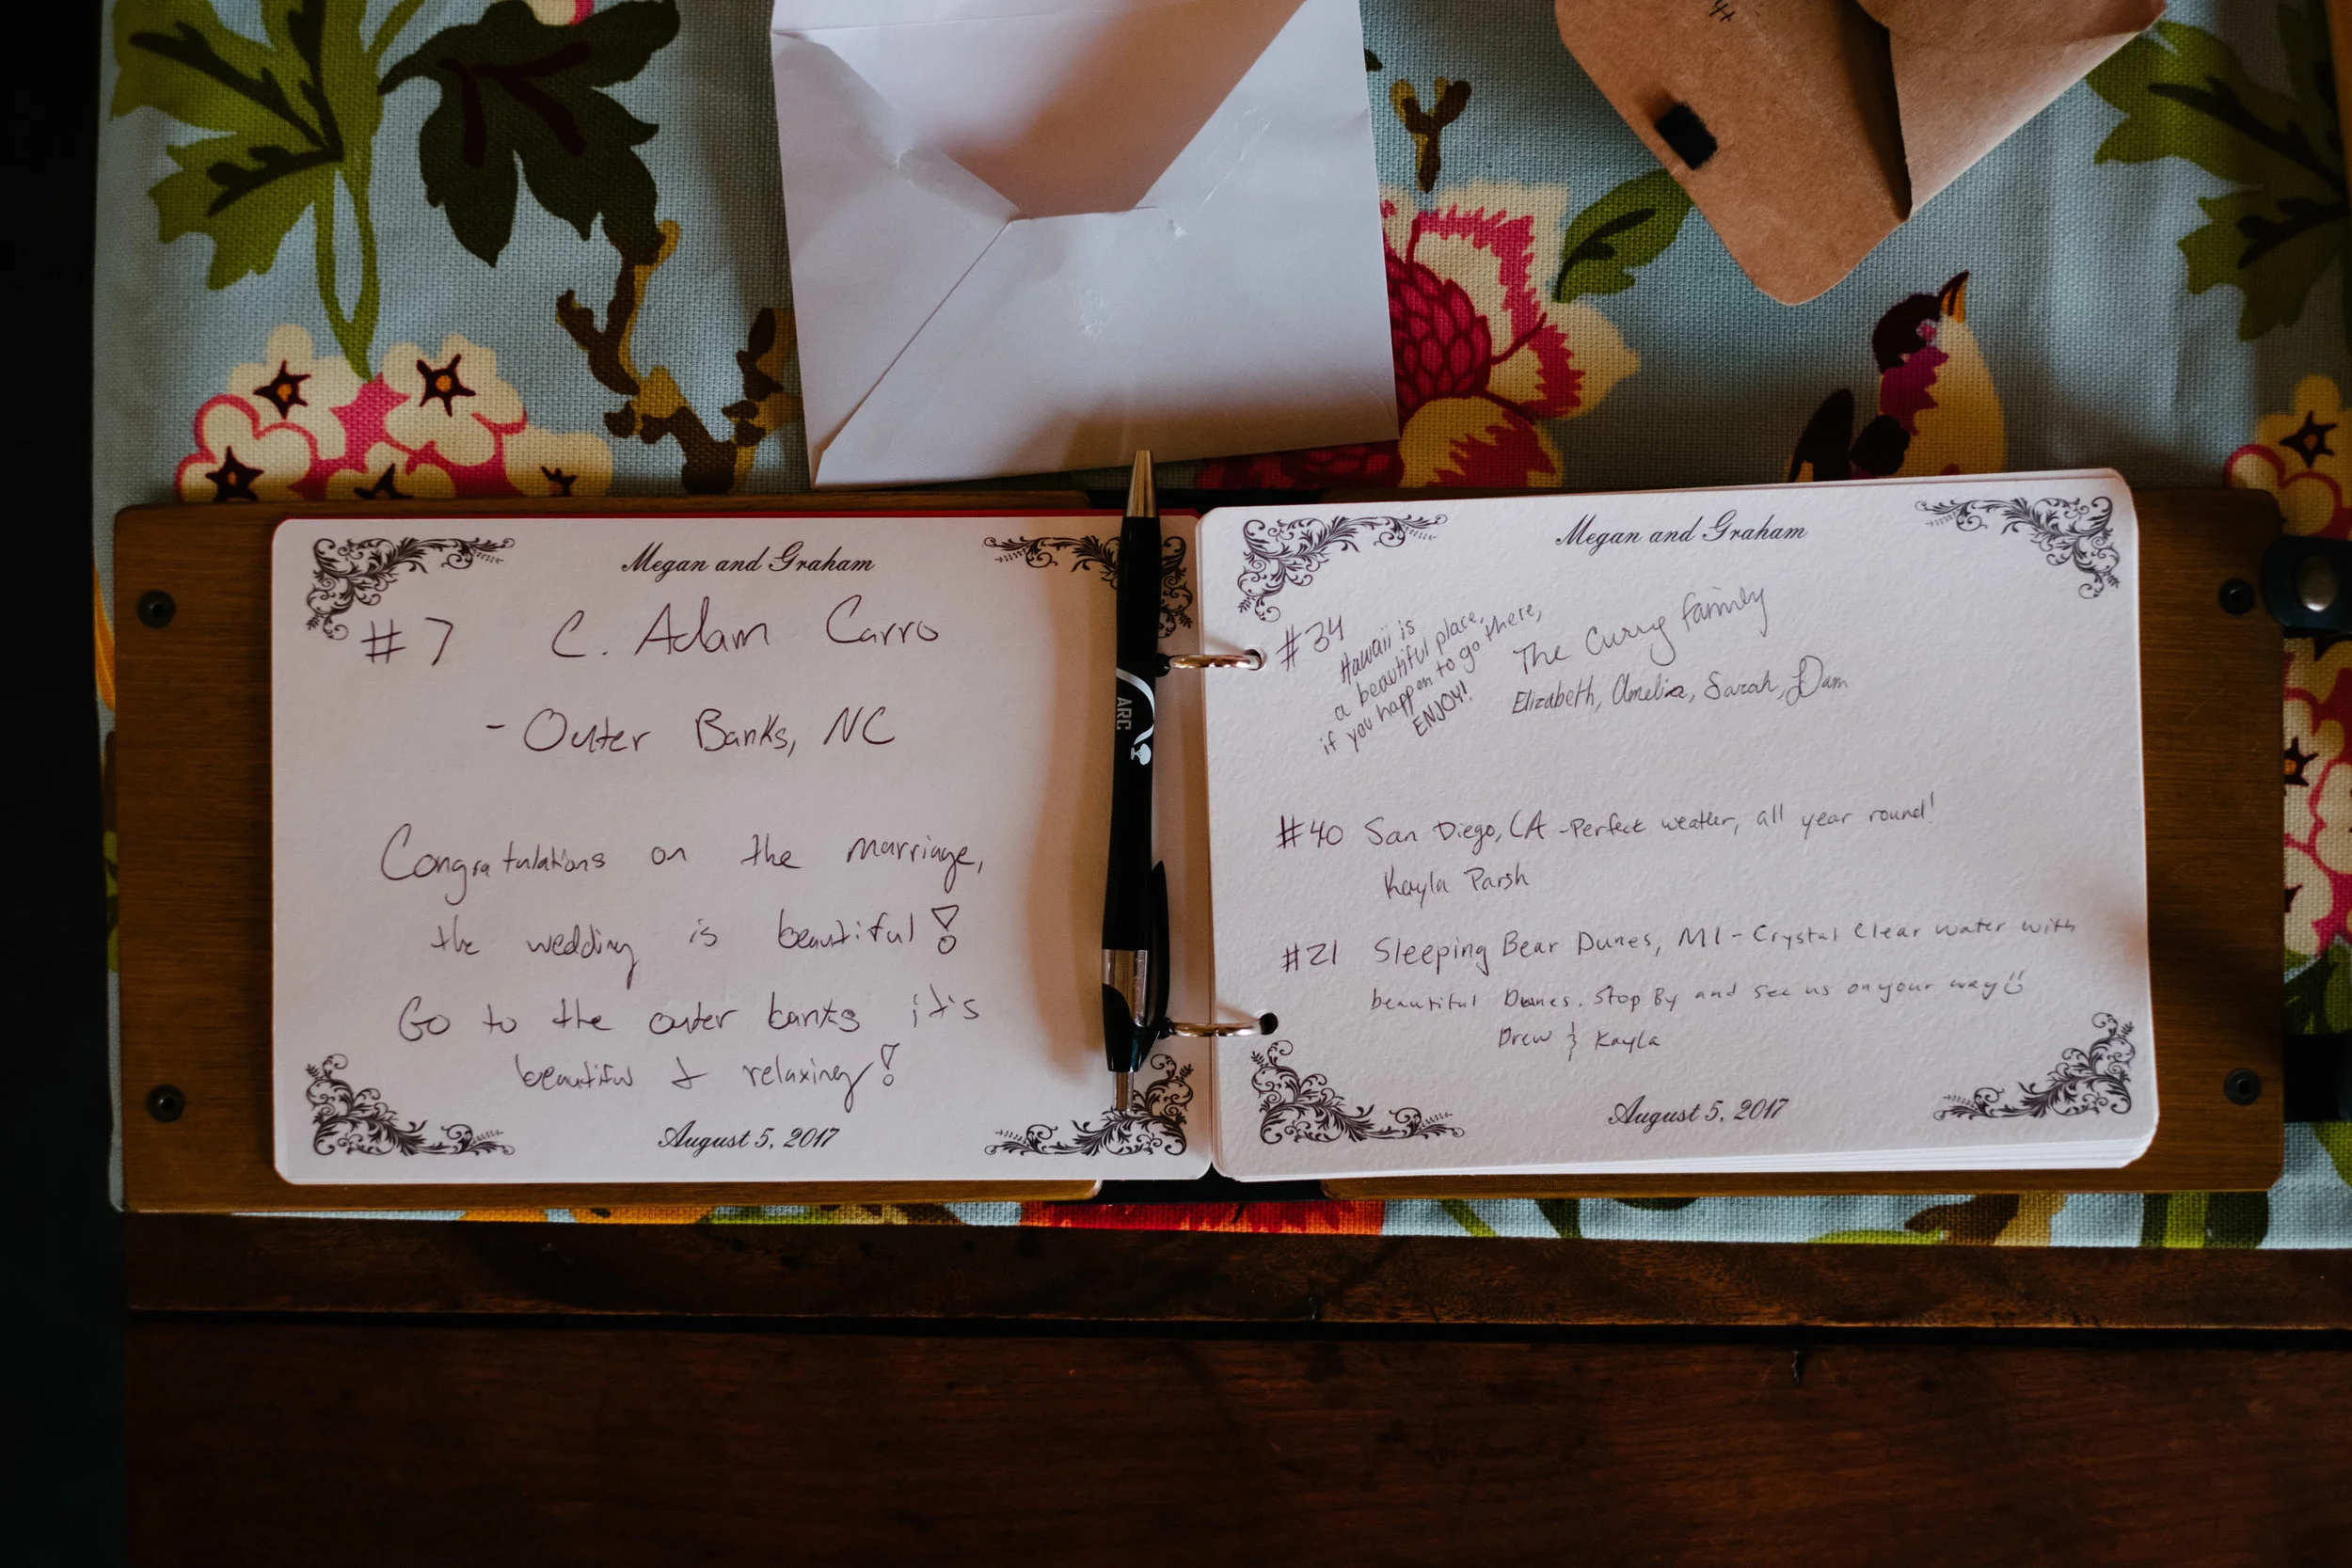 Megan and Graham
#7 C. Adam Carro
- Outer Banks, NC
Congratulations on the marriage,
the wedding is beautiful!
Go to the outer banks it's
beautiful & relaxing!
August 5, 2017
ARC
Megan and Graham
#34
Hawaii is
a beautiful place,
if you happen to go there,
ENJOY!
The Curry Family
Elizabeth, Amelia, Sarah, Dam
#40 San Diego, CA - Perfect weather, all year round!
Kayla Parsh
#21 Sleeping Bear Dunes, MI - Crystal Clear water with
beautiful Dunes. Stop By and see us on your way☺
Drew & Kayla
August 5, 2017